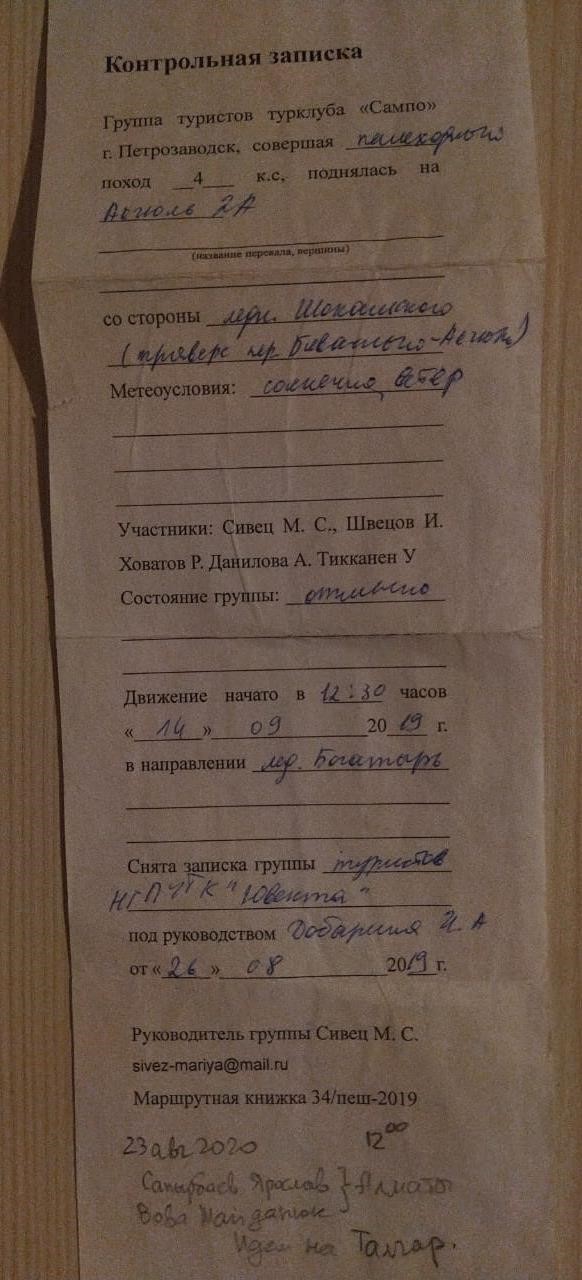 Контрольная записка
Группа туристов турклуба «Сампо»
г. Петрозаводск, совершая пешеходный
поход 4 к.с, поднялась на
Актюль 2А
(название перевала, вершины)
со стороны ледн. Шокальского
(траверс пер. -Актюль)
Метеоусловия: солнечно, ветер
Участники: Сивец М. С., Швецов И.
Ховатов Р. Данилова А. Тикканен У
Состояние группы: отлично
Движение начато в 12:30 часов
« 14 » 09 2019 г.
в направлении лед. Богатырь
Снята записка группы туристов
ТК "Ювента"
под руководством И. А
от « 26 » 08 2019 г.
Руководитель группы Сивец М. С.
sivez-mariya@mail.ru
Маршрутная книжка 34/пеш-2019
23 авг 2020 12 00
Сапырбаев Ярослав } Алматы
Вова Найданюк
Идем на Талгар.